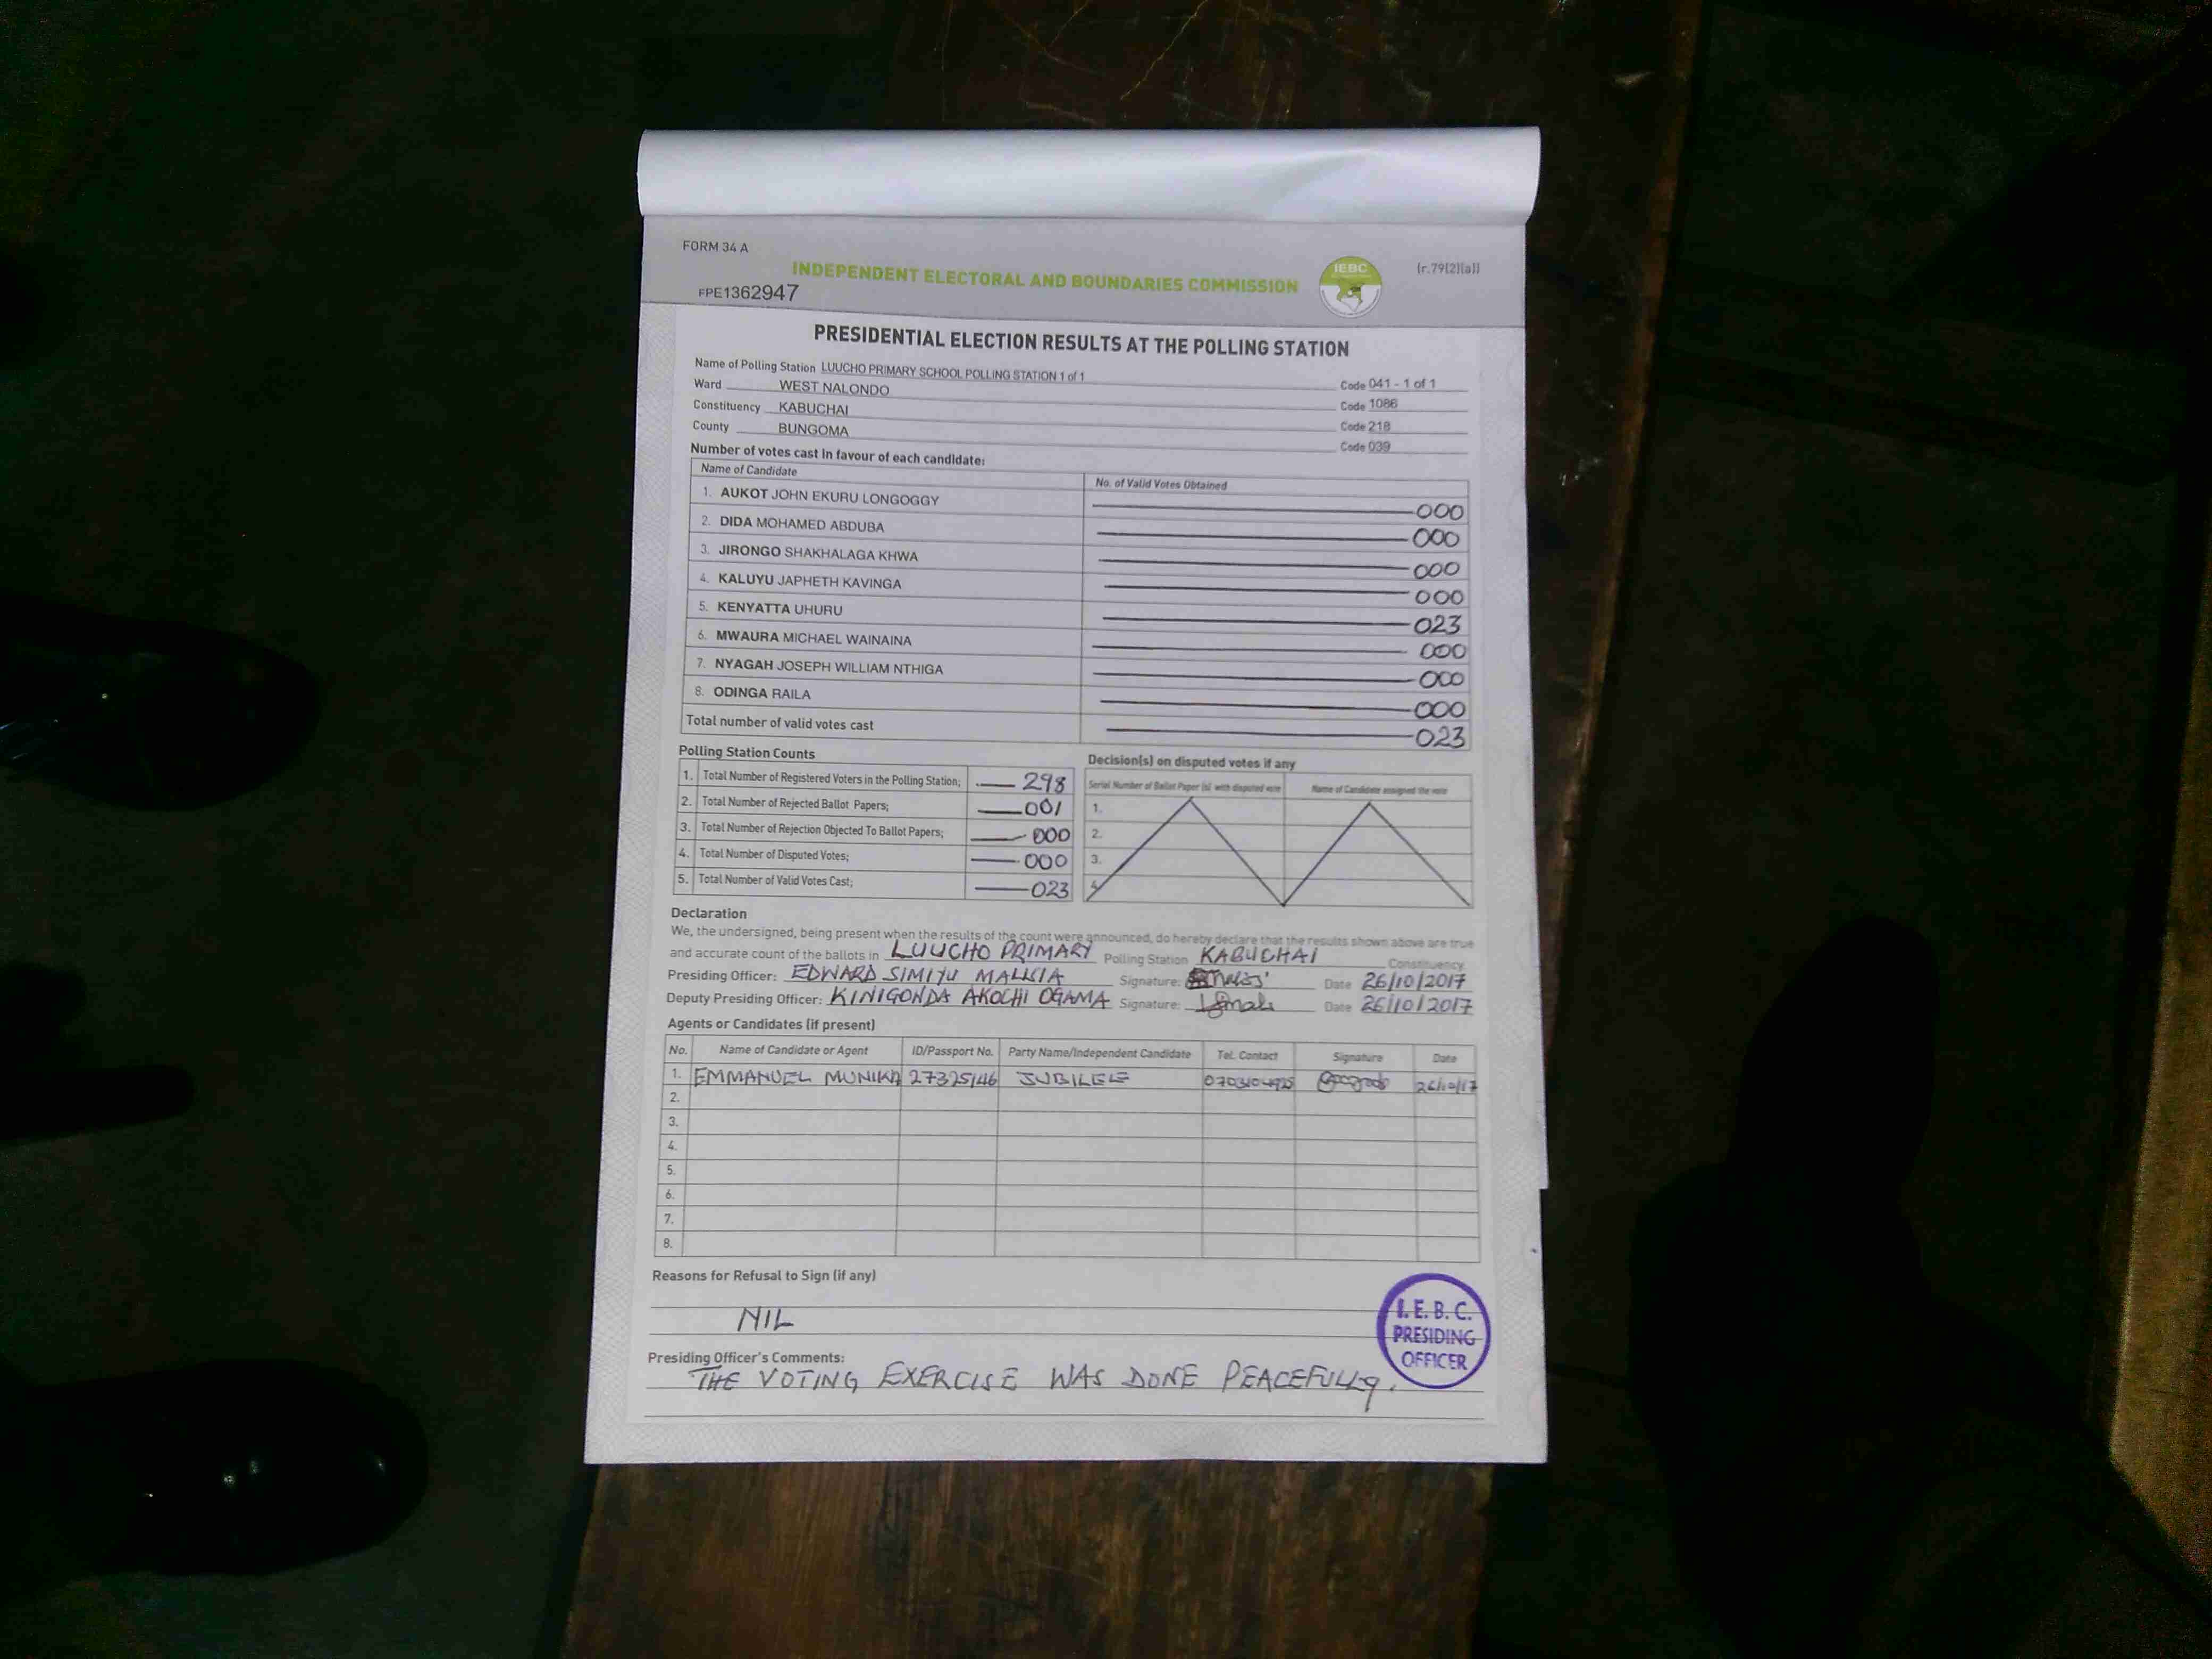 FORM 34 A
INDEPENDENT ELECTORAL AND BOUNDARIES COMMISSION
IEBC
(r.79(2)(a))
FPE1362947
PRESIDENTIAL ELECTION RESULTS AT THE POLLING STATION
Name of Polling Station LUUCHO PRIMARY SCHOOL POLLING STATION 1 of 1 Code 041 - 1 of 1
Ward WEST NALONDO Code 1086
Constituency KABUCHAI Code 218
County BUNGOMA Code 039
Number of votes cast in favour of each candidate:
Name of Candidate No. of Valid Votes Obtained
1. AUKOT JOHN EKURU LONGOGGY 000
2. DIDA MOHAMED ABDUBA 000
3. JIRONGO SHAKHALAGA KHWA 000
4. KALUYU JAPHETH KAVINGA 000
5. KENYATTA UHURU 023
6. MWAURA MICHAEL WAINAINA 000
7. NYAGAH JOSEPH WILLIAM NTHIGA 000
8. ODINGA RAILA 000
Total number of valid votes cast 023
Polling Station Counts
1. Total Number of Registered Voters in the Polling Station; 298
2. Total Number of Rejected Ballot Papers; 001
3. Total Number of Rejection Objected To Ballot Papers; 000
4. Total Number of Disputed Votes; 000
5. Total Number of Valid Votes Cast; 023
Decision(s) on disputed votes if any
Serial Number of Ballot Paper (s) with disputed vote Name of Candidate assigned the vote
1.
2.
3.
4.
Declaration
We, the undersigned, being present when the results of the count were announced, do hereby declare that the results shown above are true
and accurate count of the ballots in LUUCHO PRIMARY Polling Station KABUCHAI Constituency
Presiding Officer: EDWARD SIMIYU Signature: Date 26/10/2017
Deputy Presiding Officer: KINIGONDA AKOCHI OGAMA Signature: Date 26/10/2017
Agents or Candidates (if present)
No. Name of Candidate or Agent ID/Passport No. Party Name/Independent Candidate Tel. Contact Signature Date
1. EMMANUEL MUNIKA 27325146 JUBILEE 26/10/17
2.
3.
4.
5.
6.
7.
8.
Reasons for Refusal to Sign (if any)
NIL
Presiding Officer's Comments:
THE VOTING EXERCISE WAS DONE PEACEFULLY.
I.E.B.C.
PRESIDING
OFFICER